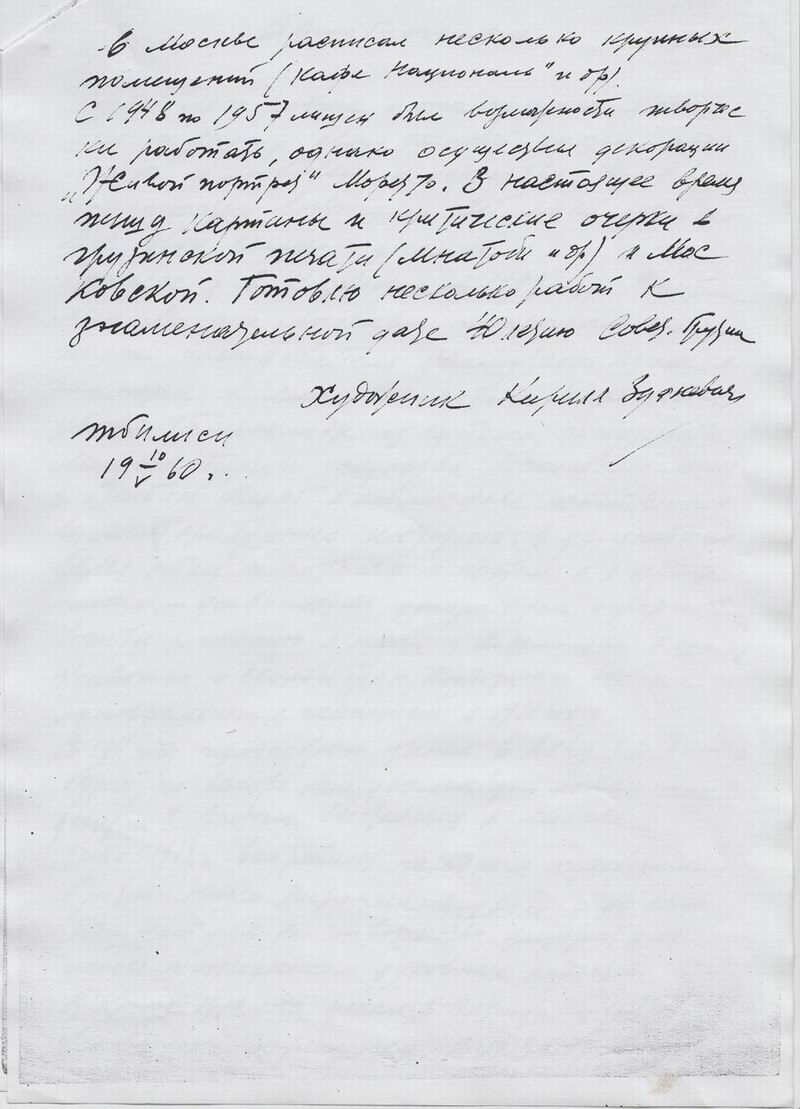 В Москве расписал несколько крупных
помещений (Кафе Националь" и др).
С 1948 по 1957 лишен был возможности творчес
ки работать, однако осуществил декорации
"Живой портрет" Морето. В настоящее время
пишу картины и критические очерки в
грузинской печати (Мнатоби и др) и Мос
ковской. Готовлю несколько работ к
знаменательной дате 40летию Совет. Грузии
Художник Кирилл Зданевич
Тбилиси
19 10/V 60.